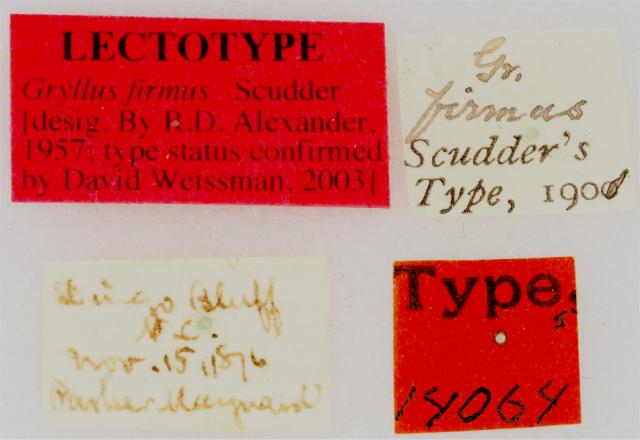 LECTOTYPE
Gryllus firmus Scudder
[desig. By R.D. Alexander,
1957; type status confirmed
by David Weissman, 2003]
Gr.
firmus
Scudder's
Type, 1900
Dingo Bluff
N.C.
Nov. 15, 1876
Parker Maynard
Type.
14064